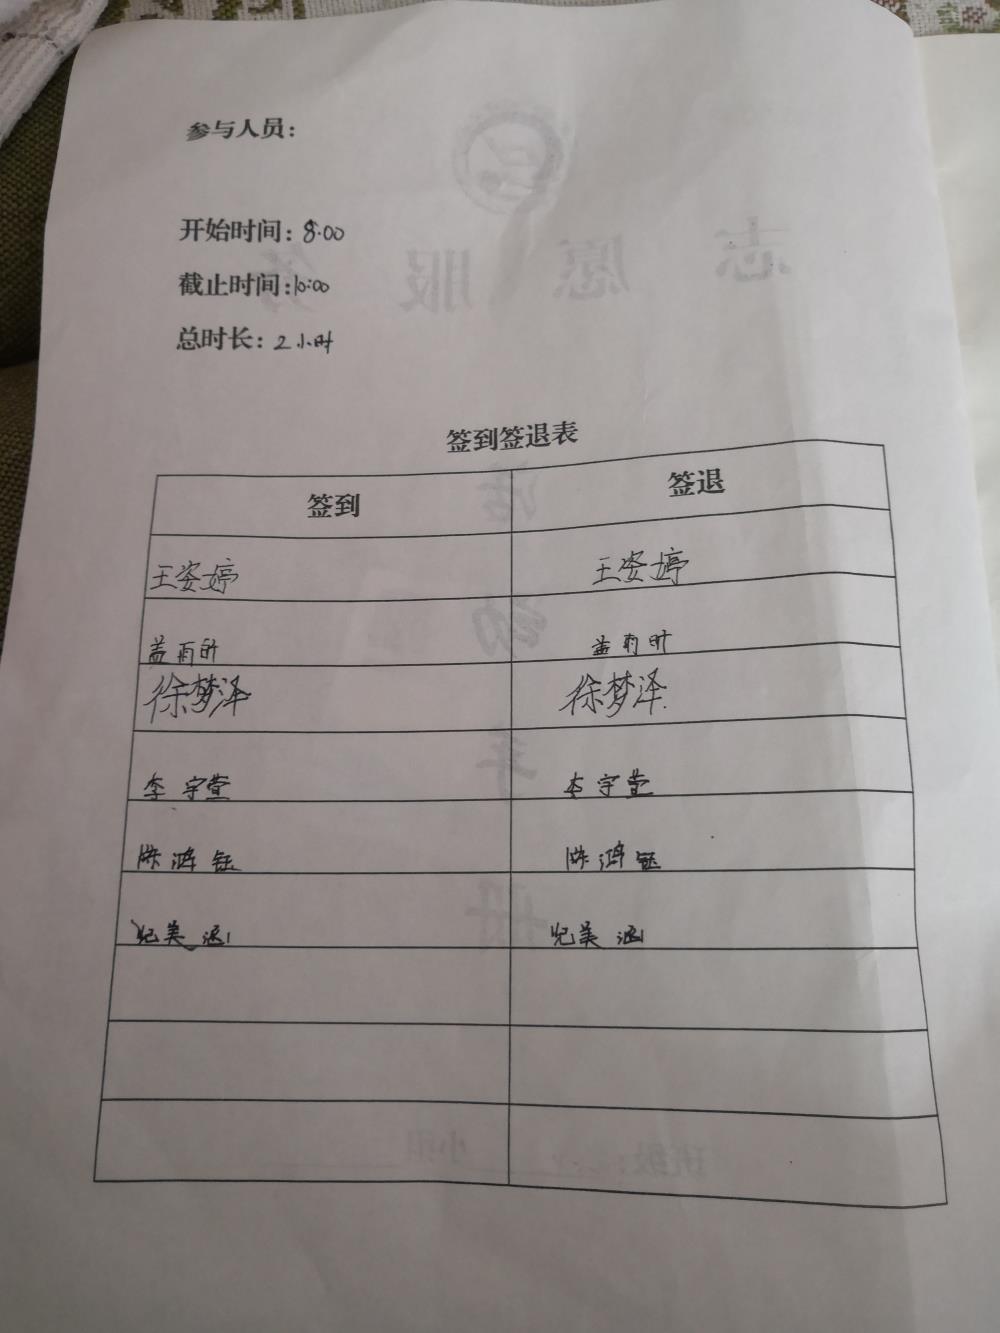 参与人员：
开始时间：8:00
截止时间：10:00
总时长：2小时
签到签退表
签到 签退
王姿婷 王姿婷
盖雨昕 盖雨昕
徐梦泽 徐梦泽
李宇萱 李宇萱
陈鸿钰 陈鸿钰
纪美涵 纪美涵